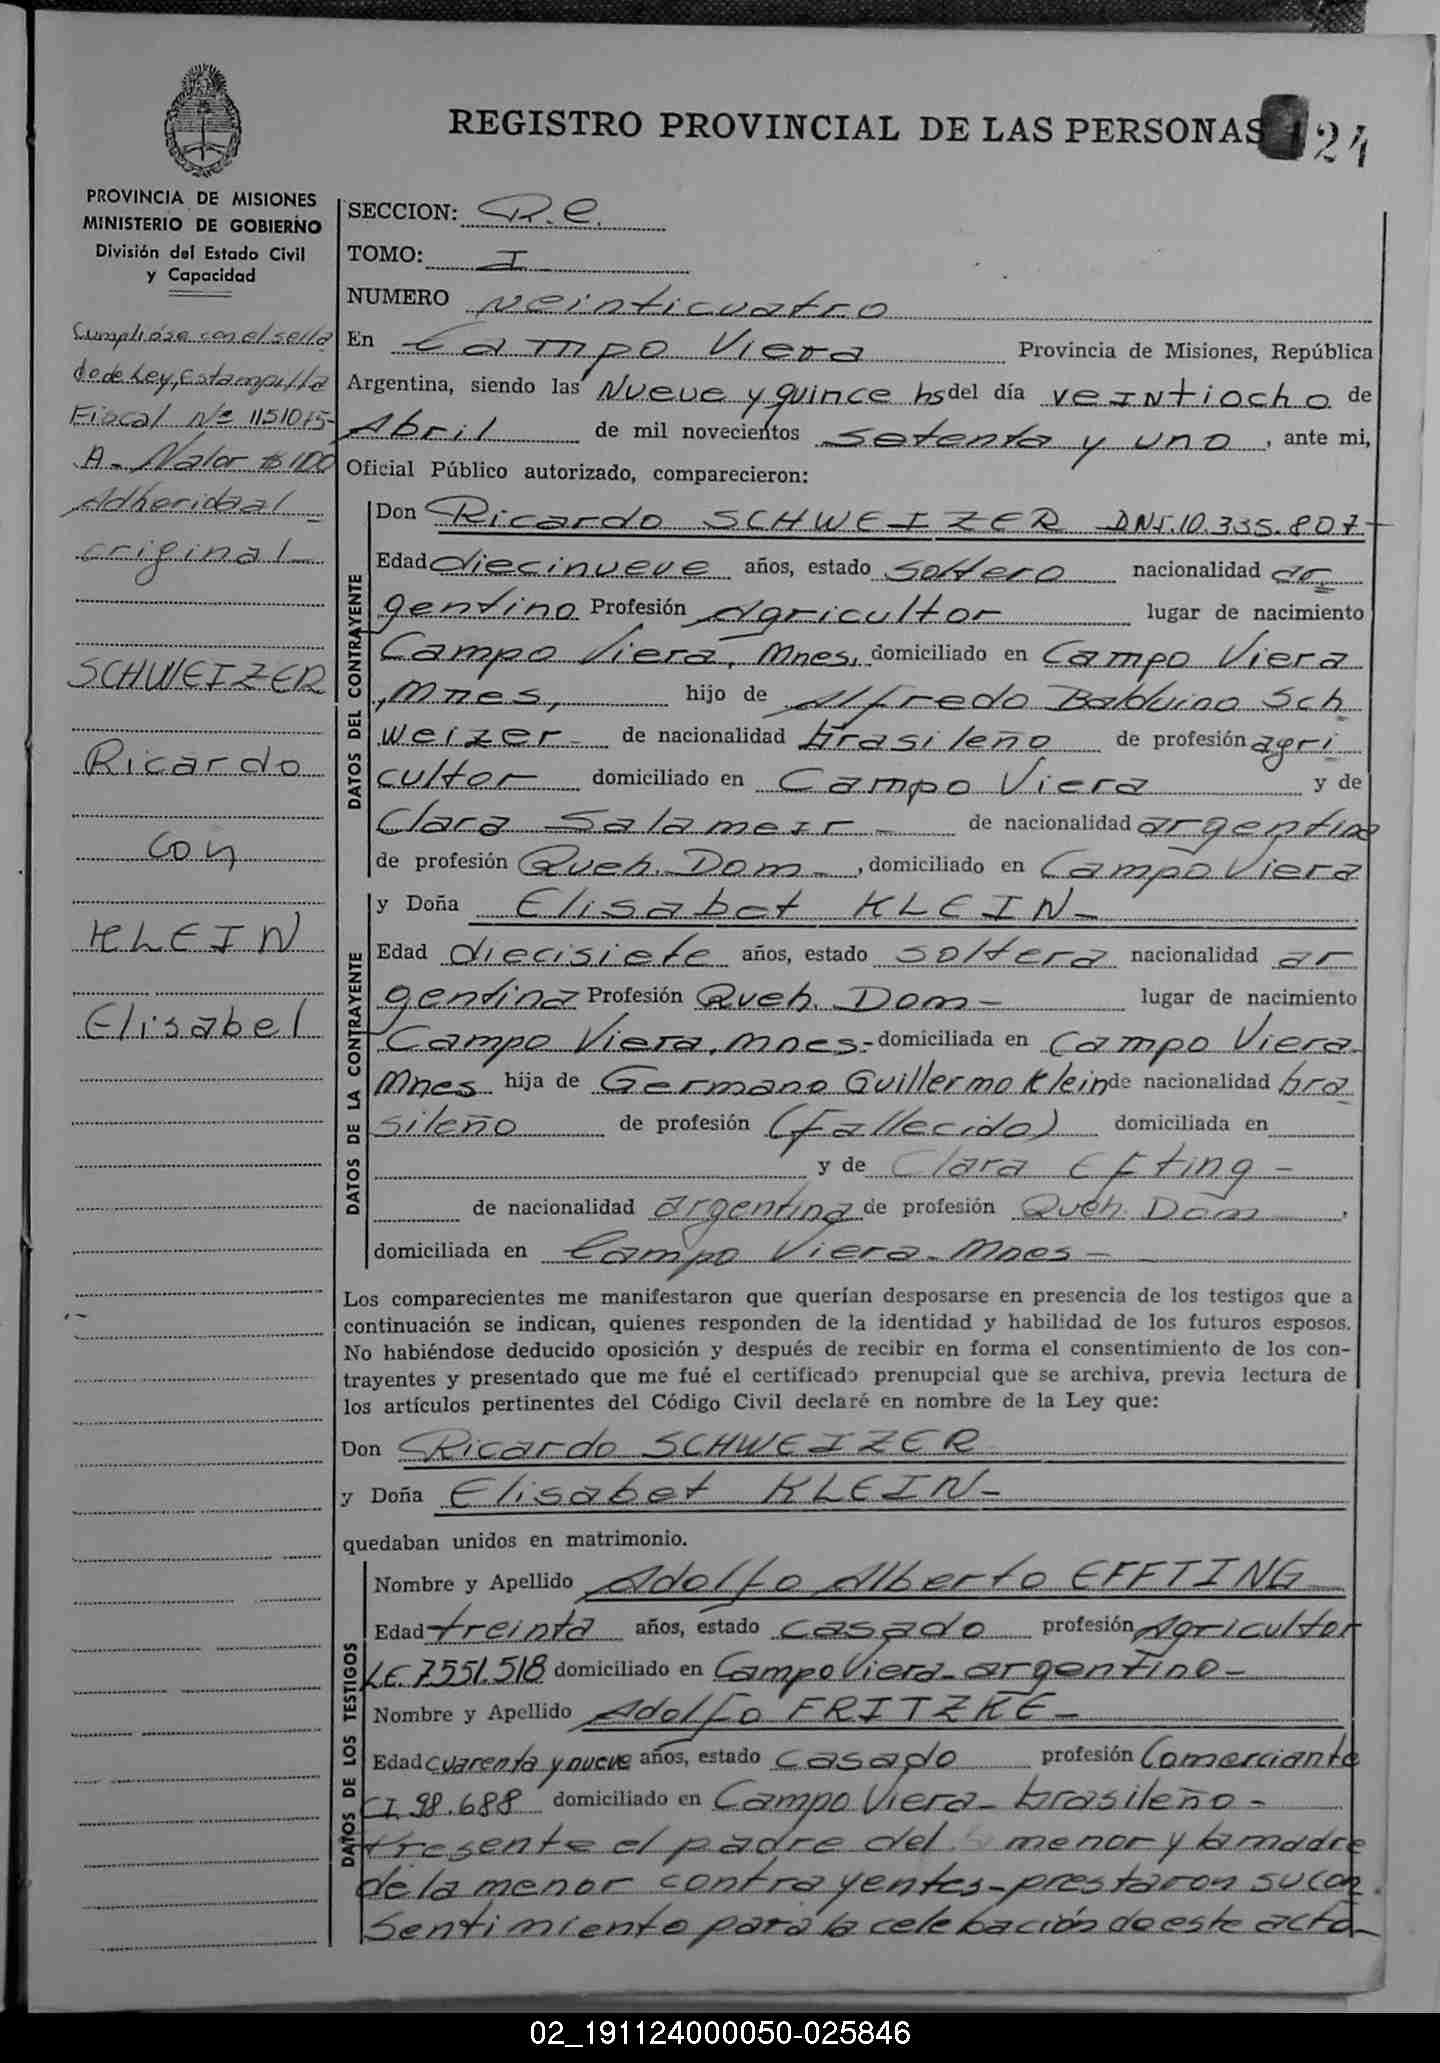 REGISTRO PROVINCIAL DE LAS PERSONAS
24
PROVINCIA DE MISIONES
MINISTERIO DE GOBIERNO
División del Estado Civil
y Capacidad
Cumplióse con el sella
do de Ley, Estampilla
Fiscal Nº 1151015-
A- Valor $ 100
Adherida al
original
SCHWEIZER
Ricardo
con
KLEIN
Elisabet
SECCION: R.C.
TOMO: I
NUMERO Veinticuatro
En Campo Viera Provincia de Misiones, República
Argentina, siendo las Nueve y quince hs del día veintiocho de
Abril de mil novecientos setenta y uno, ante mi,
Oficial Público autorizado, comparecieron:
DATOS DEL CONTRAYENTE
Don Ricardo SCHWEIZER DNI.10.335.807-
Edad diecinueve años, estado soltero nacionalidad ar
gentino Profesión Agricultor lugar de nacimiento
Campo Viera, Mnes, domiciliado en Campo Viera
, Mnes, hijo de Alfredo Balduino Sch
weizer- de nacionalidad brasileño de profesión agri
cultor domiciliado en Campo Viera y de
Clara Salameir- de nacionalidad argentina
de profesión Queh. Dom-, domiciliado en Campo Viera
DATOS DE LA CONTRAYENTE
y Doña Elisabet KLEIN-
Edad diecisiete años, estado soltera nacionalidad ar
gentina Profesión Queh. Dom- lugar de nacimiento
Campo Viera, Mnes- domiciliada en Campo Viera-
Mnes hija de Germano Guillermo Klein de nacionalidad bra
sileño de profesión (Fallecido) domiciliada en
y de Clara Efting-
de nacionalidad argentina de profesión Queh. Dom,
domiciliada en Campo Viera-Mnes-
Los comparecientes me manifestaron que querían desposarse en presencia de los testigos que a
continuación se indican, quienes responden de la identidad y habilidad de los futuros esposos.
No habiéndose deducido oposición y después de recibir en forma el consentimiento de los con-
trayentes y presentado que me fué el certificado prenupcial que se archiva, previa lectura de
los artículos pertinentes del Código Civil declaré en nombre de la Ley que:
Don Ricardo SCHWEIZER
y Doña Elisabet KLEIN-
quedaban unidos en matrimonio.
DATOS DE LOS TESTIGOS
Nombre y Apellido Adolfo Alberto EFFTING
Edad treinta años, estado casado profesión Agricultor
LE.7551.518 domiciliado en Campo Viera-argentino-
Nombre y Apellido Adolfo FRITZKE-
Edad cuarenta y nueve años, estado casado profesión Comerciante
CI 98.688 domiciliado en Campo Viera- brasileño-
Presente el padre del menor y la madre
de la menor contrayentes-prestaron su con
sentimiento para la celebación de este acto-
02_191124000050-025846